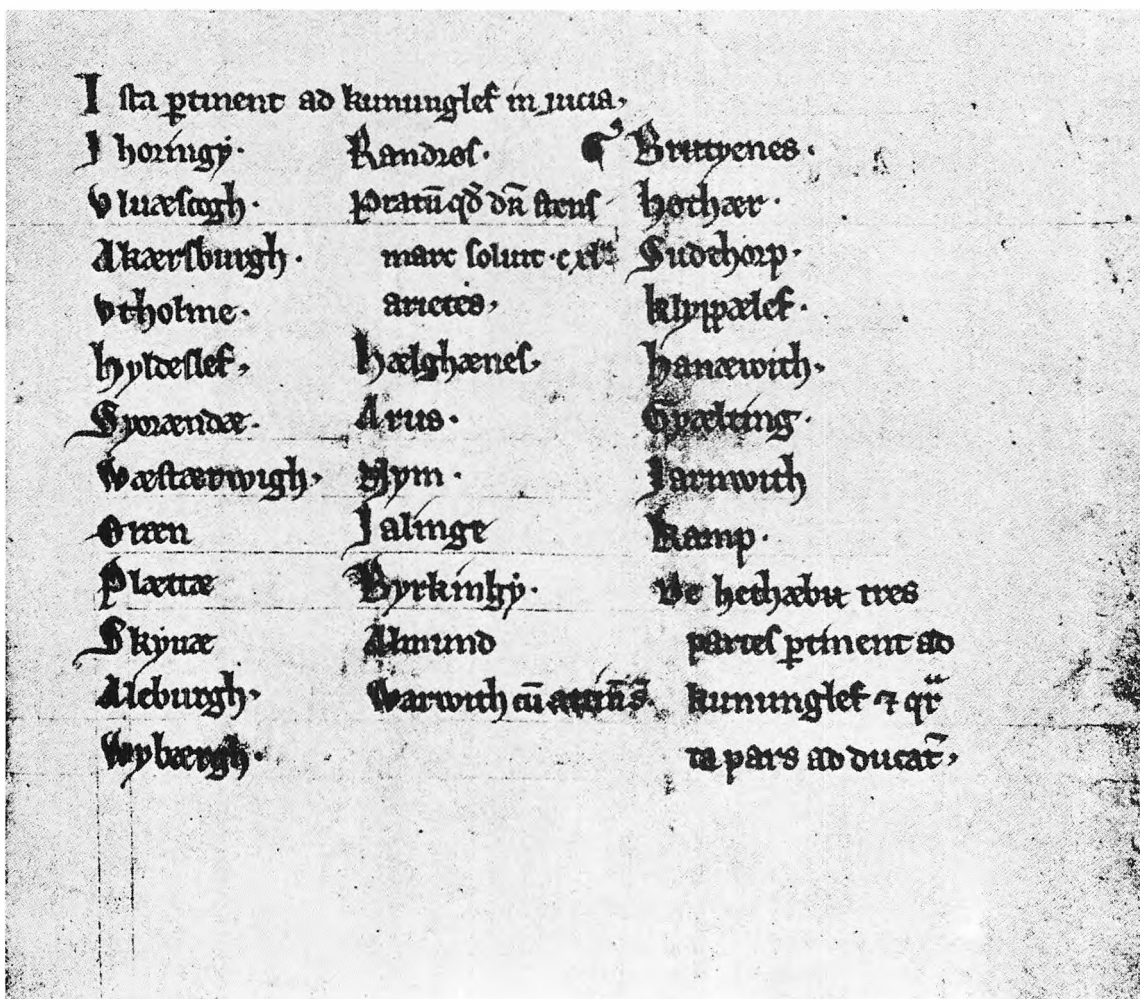 Ista ꝑtinent ad kununglef in iucia.
Jhoringy.
Vluæscogh.
Akærsburgh.
Vtholme.
hyldeslef.
Sporændæ.
Wæstærwigh.
Oræn
Plættæ
Skyuæ
Aleburgh.
Wybærgh.
Randrøs.
Pratū qd̄ dn̄
marc soluit
arietes.
hælghænes.
Arus.
Hym.
Jalinge
Byrkinhy.
Almund
Warwith cū
Brutyenes.
hothær.
Sudthorp.
klyppælef.
hanæwith.
Gyælting.
Jarnwith
kamp.
De hethæbu tres
partes ꝑtinent ad
kununglef ⁊ qr̄
ta pars ad ducat̄.